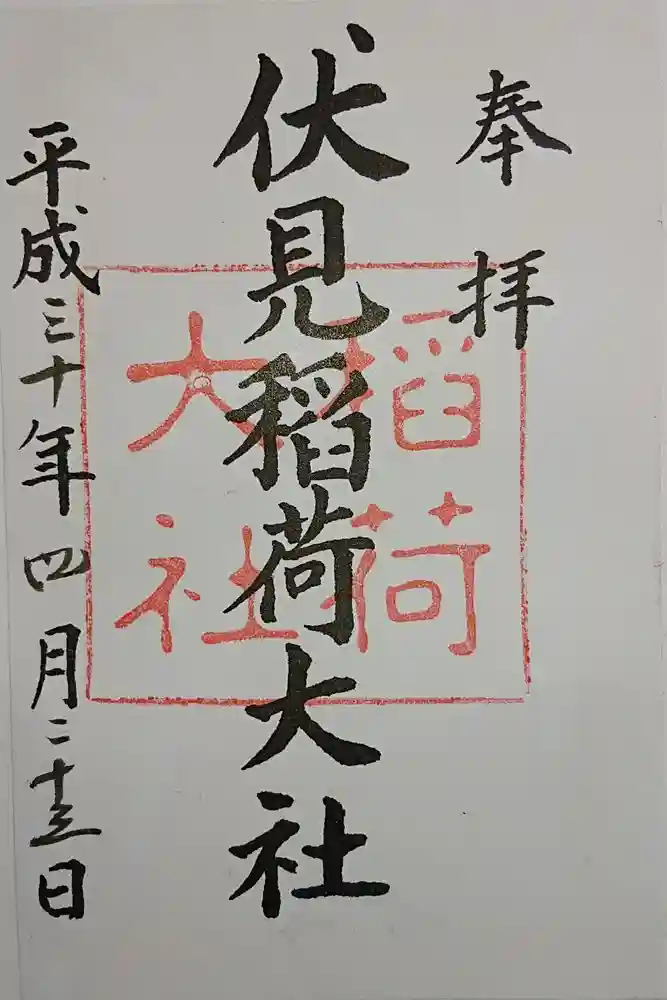 奉拝
伏見稲荷大社
平成三十年四月二十三日
稲荷
大社